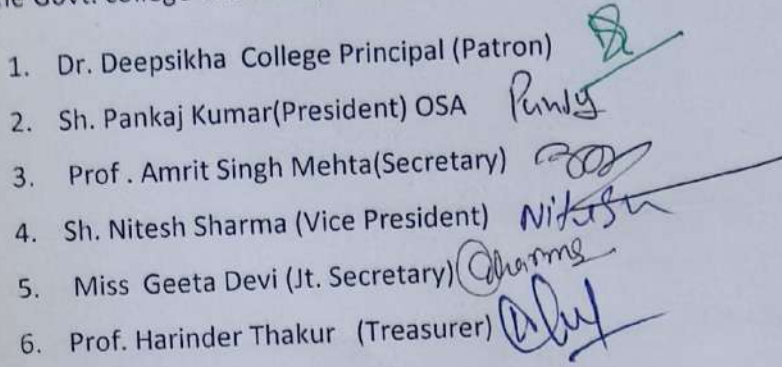 Govt. college
1. Dr. Deepsikha College Principal (Patron)
2. Sh. Pankaj Kumar(President) OSA
3. Prof . Amrit Singh Mehta(Secretary)
4. Sh. Nitesh Sharma (Vice President) Nitesh
5. Miss Geeta Devi (Jt. Secretary)
6. Prof. Harinder Thakur (Treasurer)